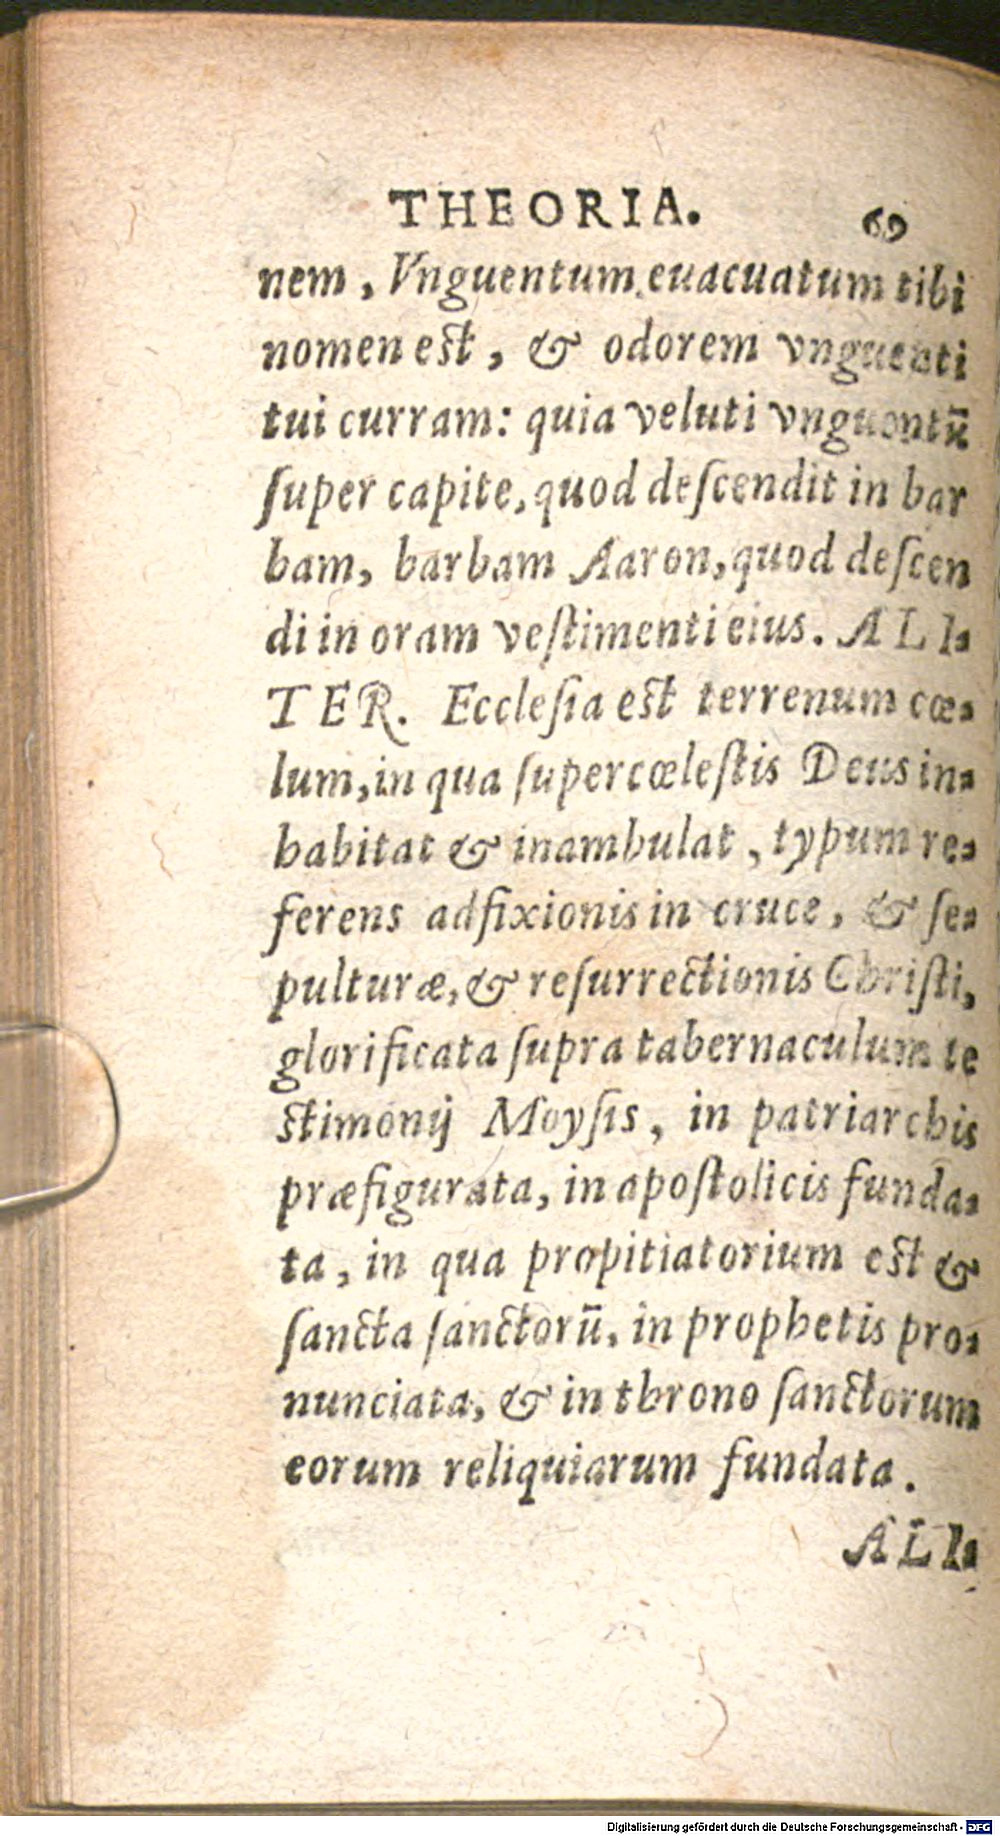 THEORIA. 69
nem, Vnguentum euacuatum tibi
nomen est, & odorem vnguenti
tui curram: quia veluti vnguentū
ſuper capite, quod deſcendit in bar
bam, barbam Aaron, quod deſcen
di in oram veſtimenti eius. ALI-
TER. Eccleſia est terrenum cœ-
lum, in qua ſupercœleſtis Deus in-
habitat & inambulat, typum re-
ferens adfixionis in cruce, & ſe-
pulturæ, & reſurrectionis Chriſti,
glorificata ſupra tabernaculum te
stimonij Moyſis, in patriarchis
præfigurata, in apoſtolicis funda-
ta, in qua propitiatorium est &
ſancta ſanctorū, in prophetis pro-
nunciata, & in throno ſanctorum
eorum reliquiarum fundata.
ALI-
Digitalisierung gefördert durch die Deutsche Forschungsgemeinschaft - DFG